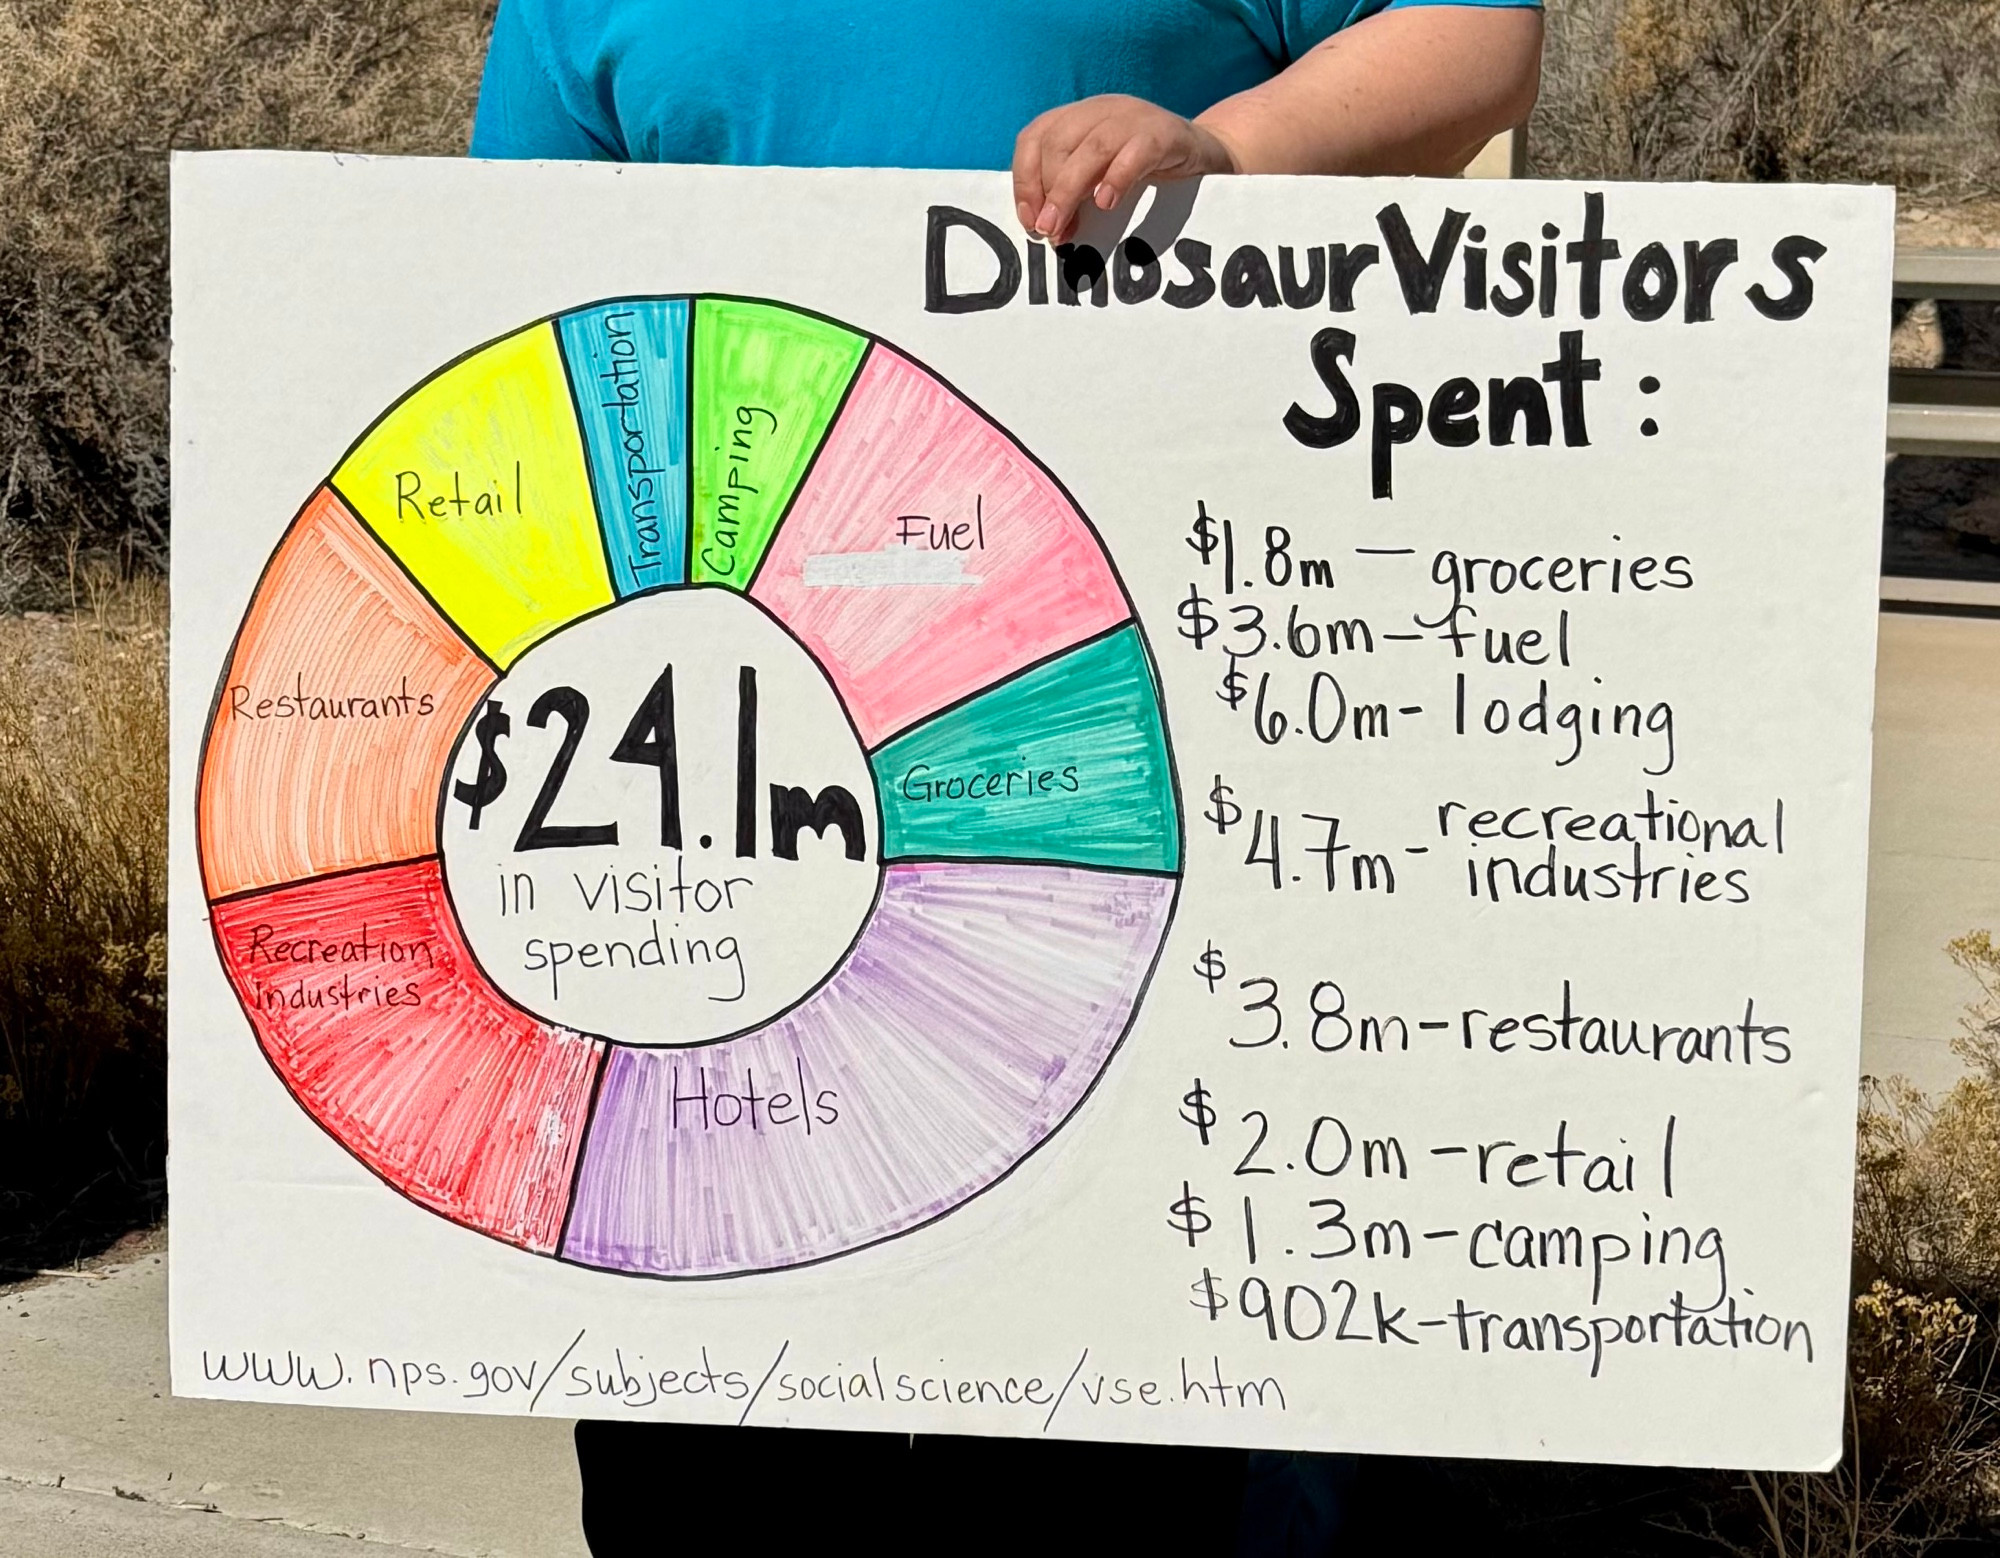 Dinosaur Visitors
Spent:
$1.8m - groceries
$3.6m - fuel
$6.0m - lodging
$4.7m - recreational
industries
$3.8m - restaurants
$2.0m - retail
$1.3m - camping
$902k - transportation
Transportation
Camping
Retail
Fuel
Restaurants
Groceries
Recreation
Industries
Hotels
$24.1m
in visitor
spending
www.nps.gov/subjects/socialscience/vse.htm